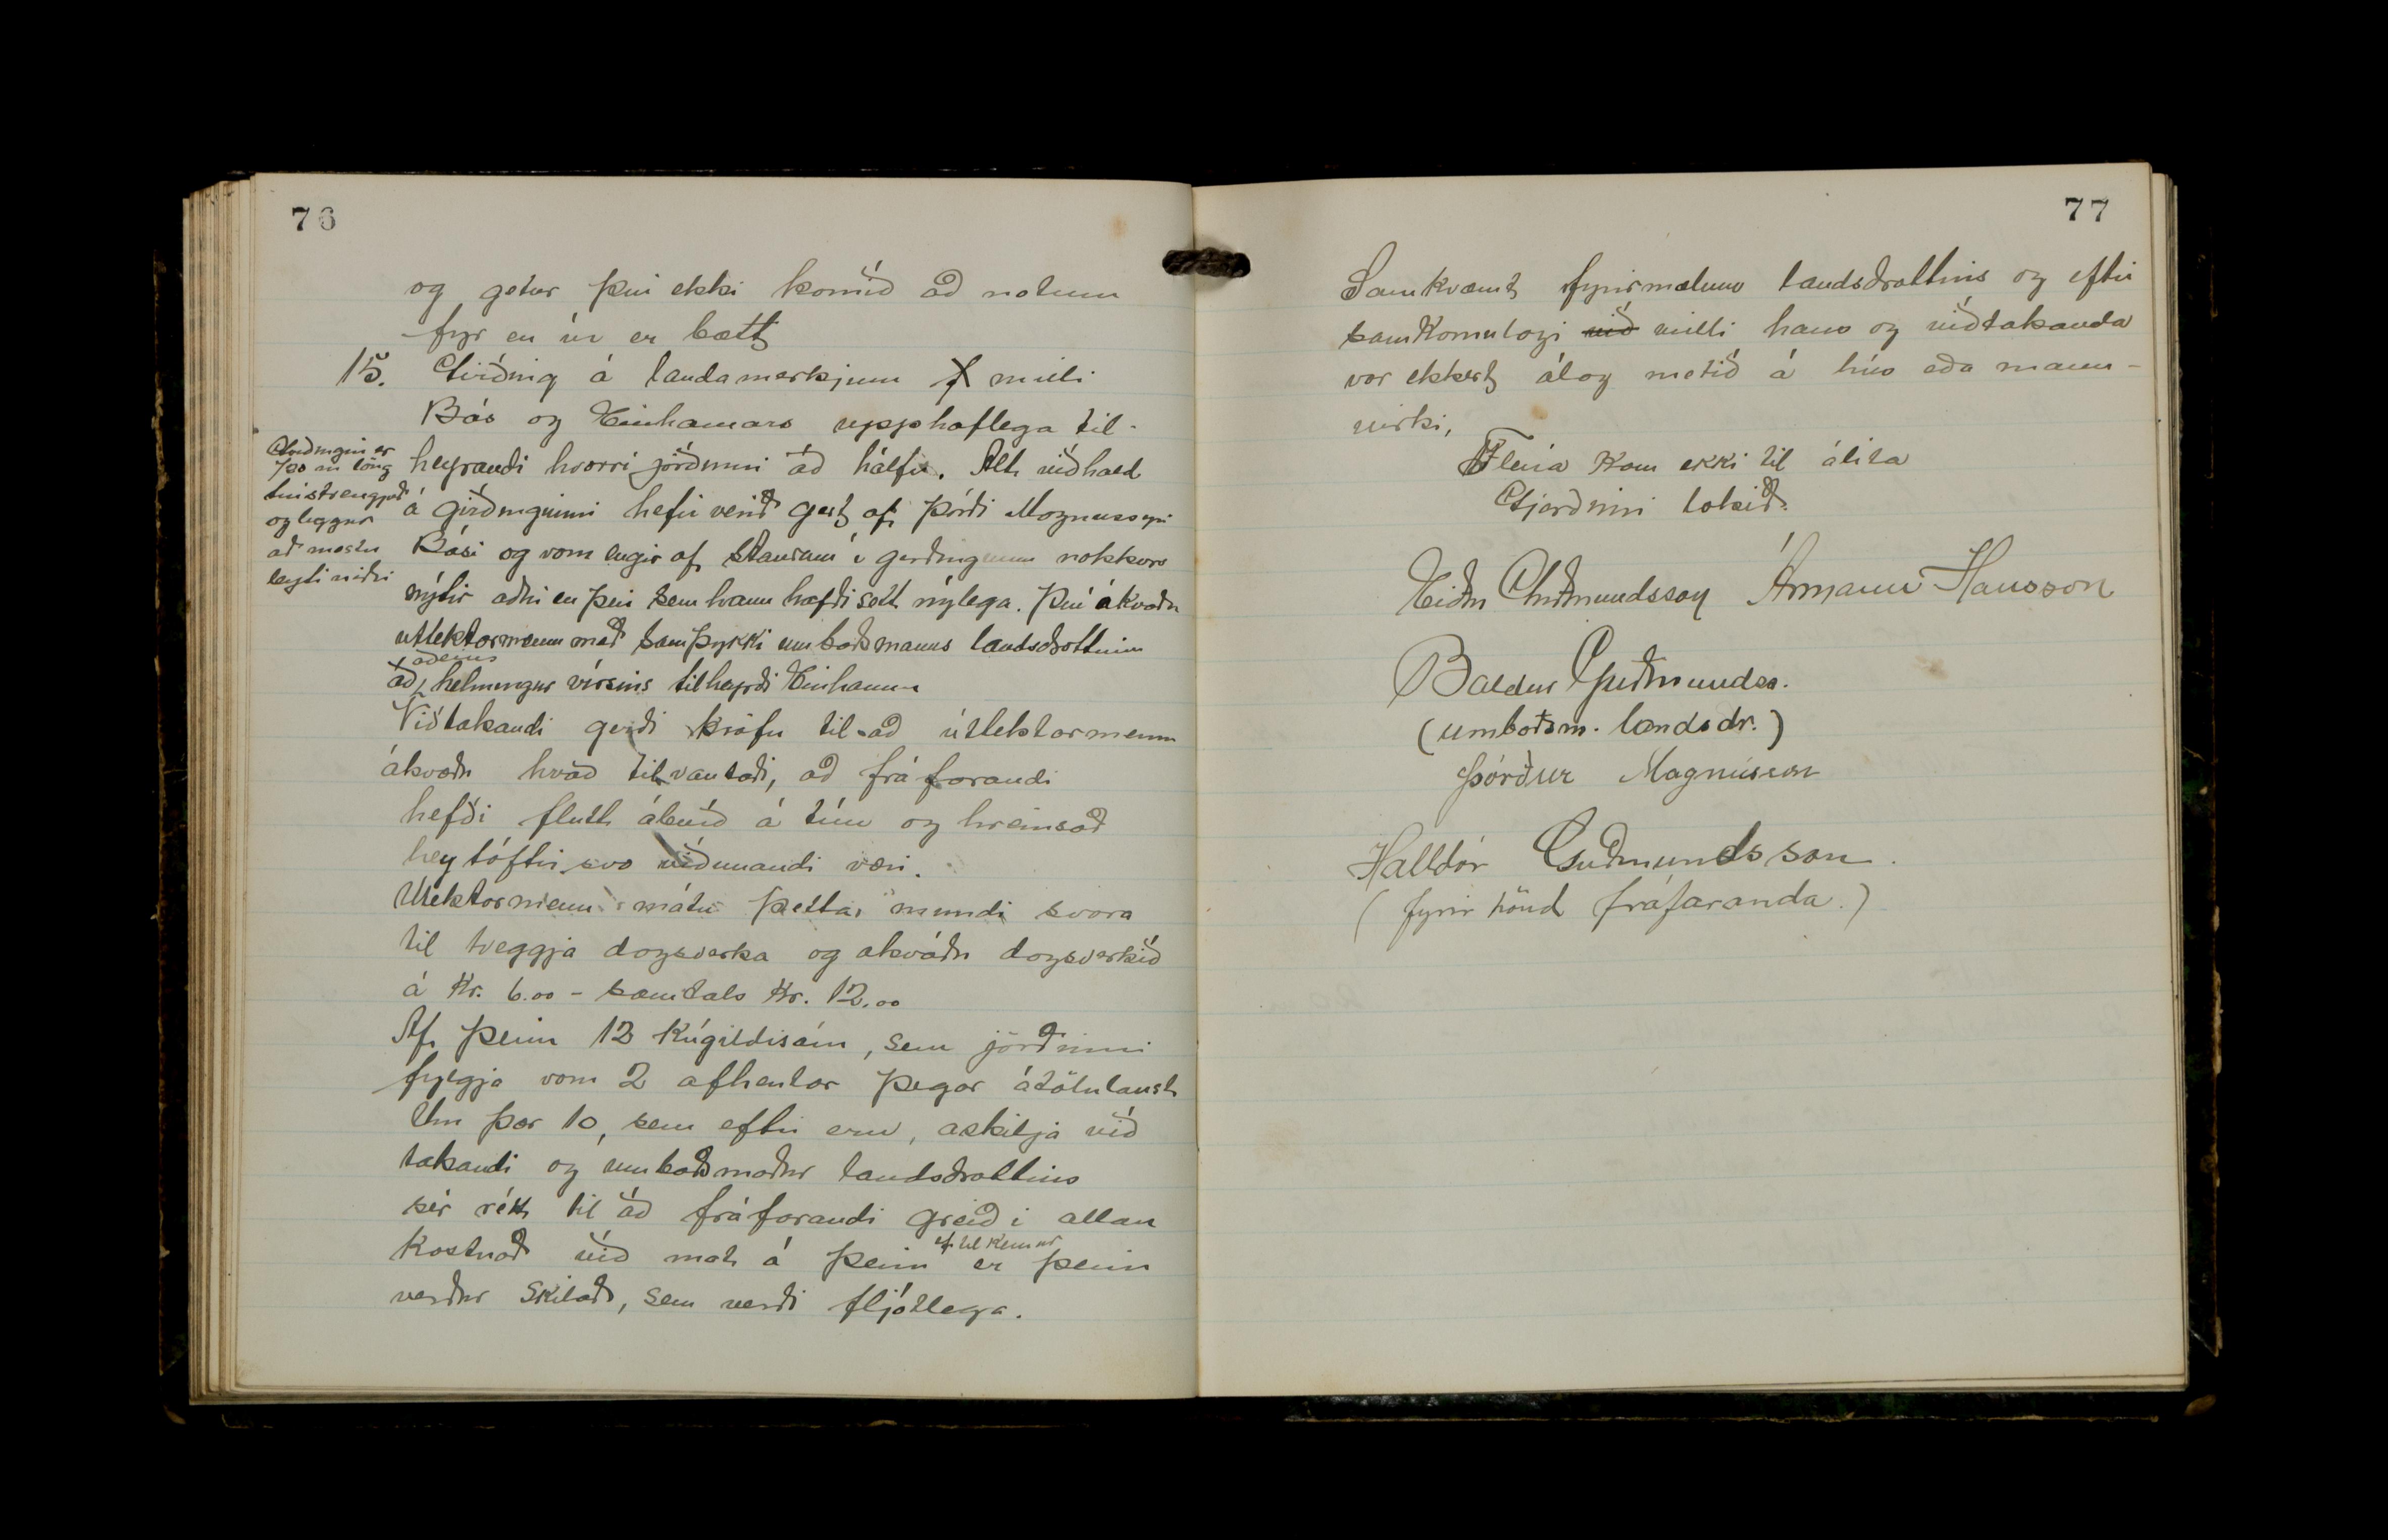 76
og getur því ekki komið að notum
fyr en úr er bætt
15. Girðing á landamerkjum milli
Bás og Einhamars upphaflega til-
heyrandi hvorri jörðinni að hálfu. Alt viðhald
á girðingunni hefir verið gert af Þórði Magnussyni
Bási og voru engir af staurum í girðingunni nokkurs
nýtir aðrir en þeir sem hann hafði sett nýlega. Því ákváðu
úttektarmenn með samþykki umboðsmanns landsdrottins
að aðeins helmingur vírsins tilheyrði Einhamri
Girðingin er
700 m löng
þrístrengjuð
og liggur
að mestu
leyti niðri
Viðtakandi gerði kröfu til að úttektarmenn
ákvæðu hvað tilvantaði, að fráfarandi
hefði flutt áburð á tún og hreinsað
heytóftir svo viðunandi væri.
Úttektarmenn mátu þetta mundi svara
til tveggja dagsverka og akváðu dagsverkið
á kr. 6.00 - samtals kr. 12.00
Af þeim 12 kúgildisám, sem jörðinni
fylgja voru 2 afhentar þegar átölulaust
Um þær 10, sem eftir eru, áskilja við
takandi og umboðsmaður landsdrottins
sér rétt til að fráfarandi greiði allan
kostnað við mat á þeim ef til kemur er þeim
verður skilað, sem verði fljótlega.
77
Samkvæmt fyrirmælum landsdrottins og eftir
samkomulagi við milli hans og viðtakanda
var ekkert álag metið á hús eða mann-
virki,
Fleira kom ekki til álita
Gjörðinni lokið.
Eiður Guðmundsson Ármann Hansson
Baldur Guðmundss.
(umboðsm. landsdr.)
Þórður Magnússon
Halldór Guðmundsson.
(fyrir hönd fráfaranda.)